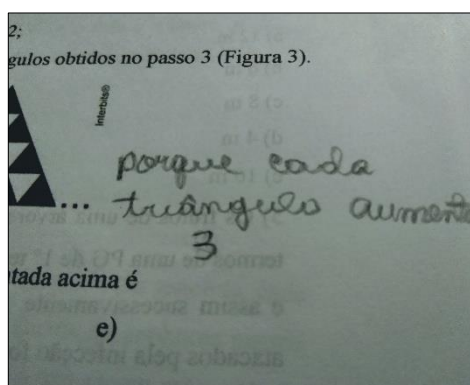 2;
gulos obtidos no passo 3 (Figura 3).
Interbits®
porque cada
... triângulo aumenta
3
tada acima é
e)